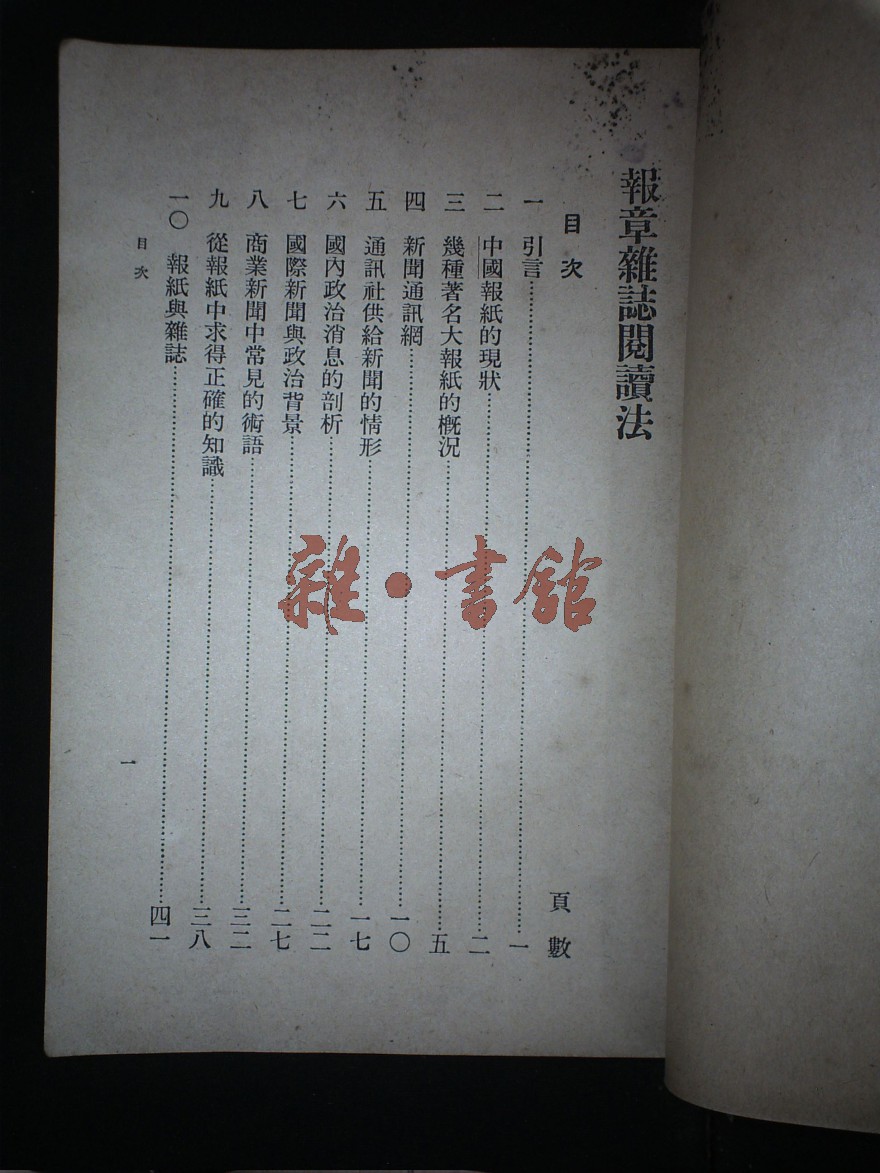 報章雜誌閱讀法
目次
頁數
一 引言……一
二 中國報紙的現狀……二
三 幾種著名大報紙的概況……五
四 新聞通訊網……一〇
五 通訊社供給新聞的情形……一七
六 國內政治消息的剖析……二二
七 國際新聞與政治背景……二七
八 商業新聞中常見的術語……三二
九 從報紙中求得正確的知識……三八
一〇 報紙與雜誌……四一
目次
一
雜·書館